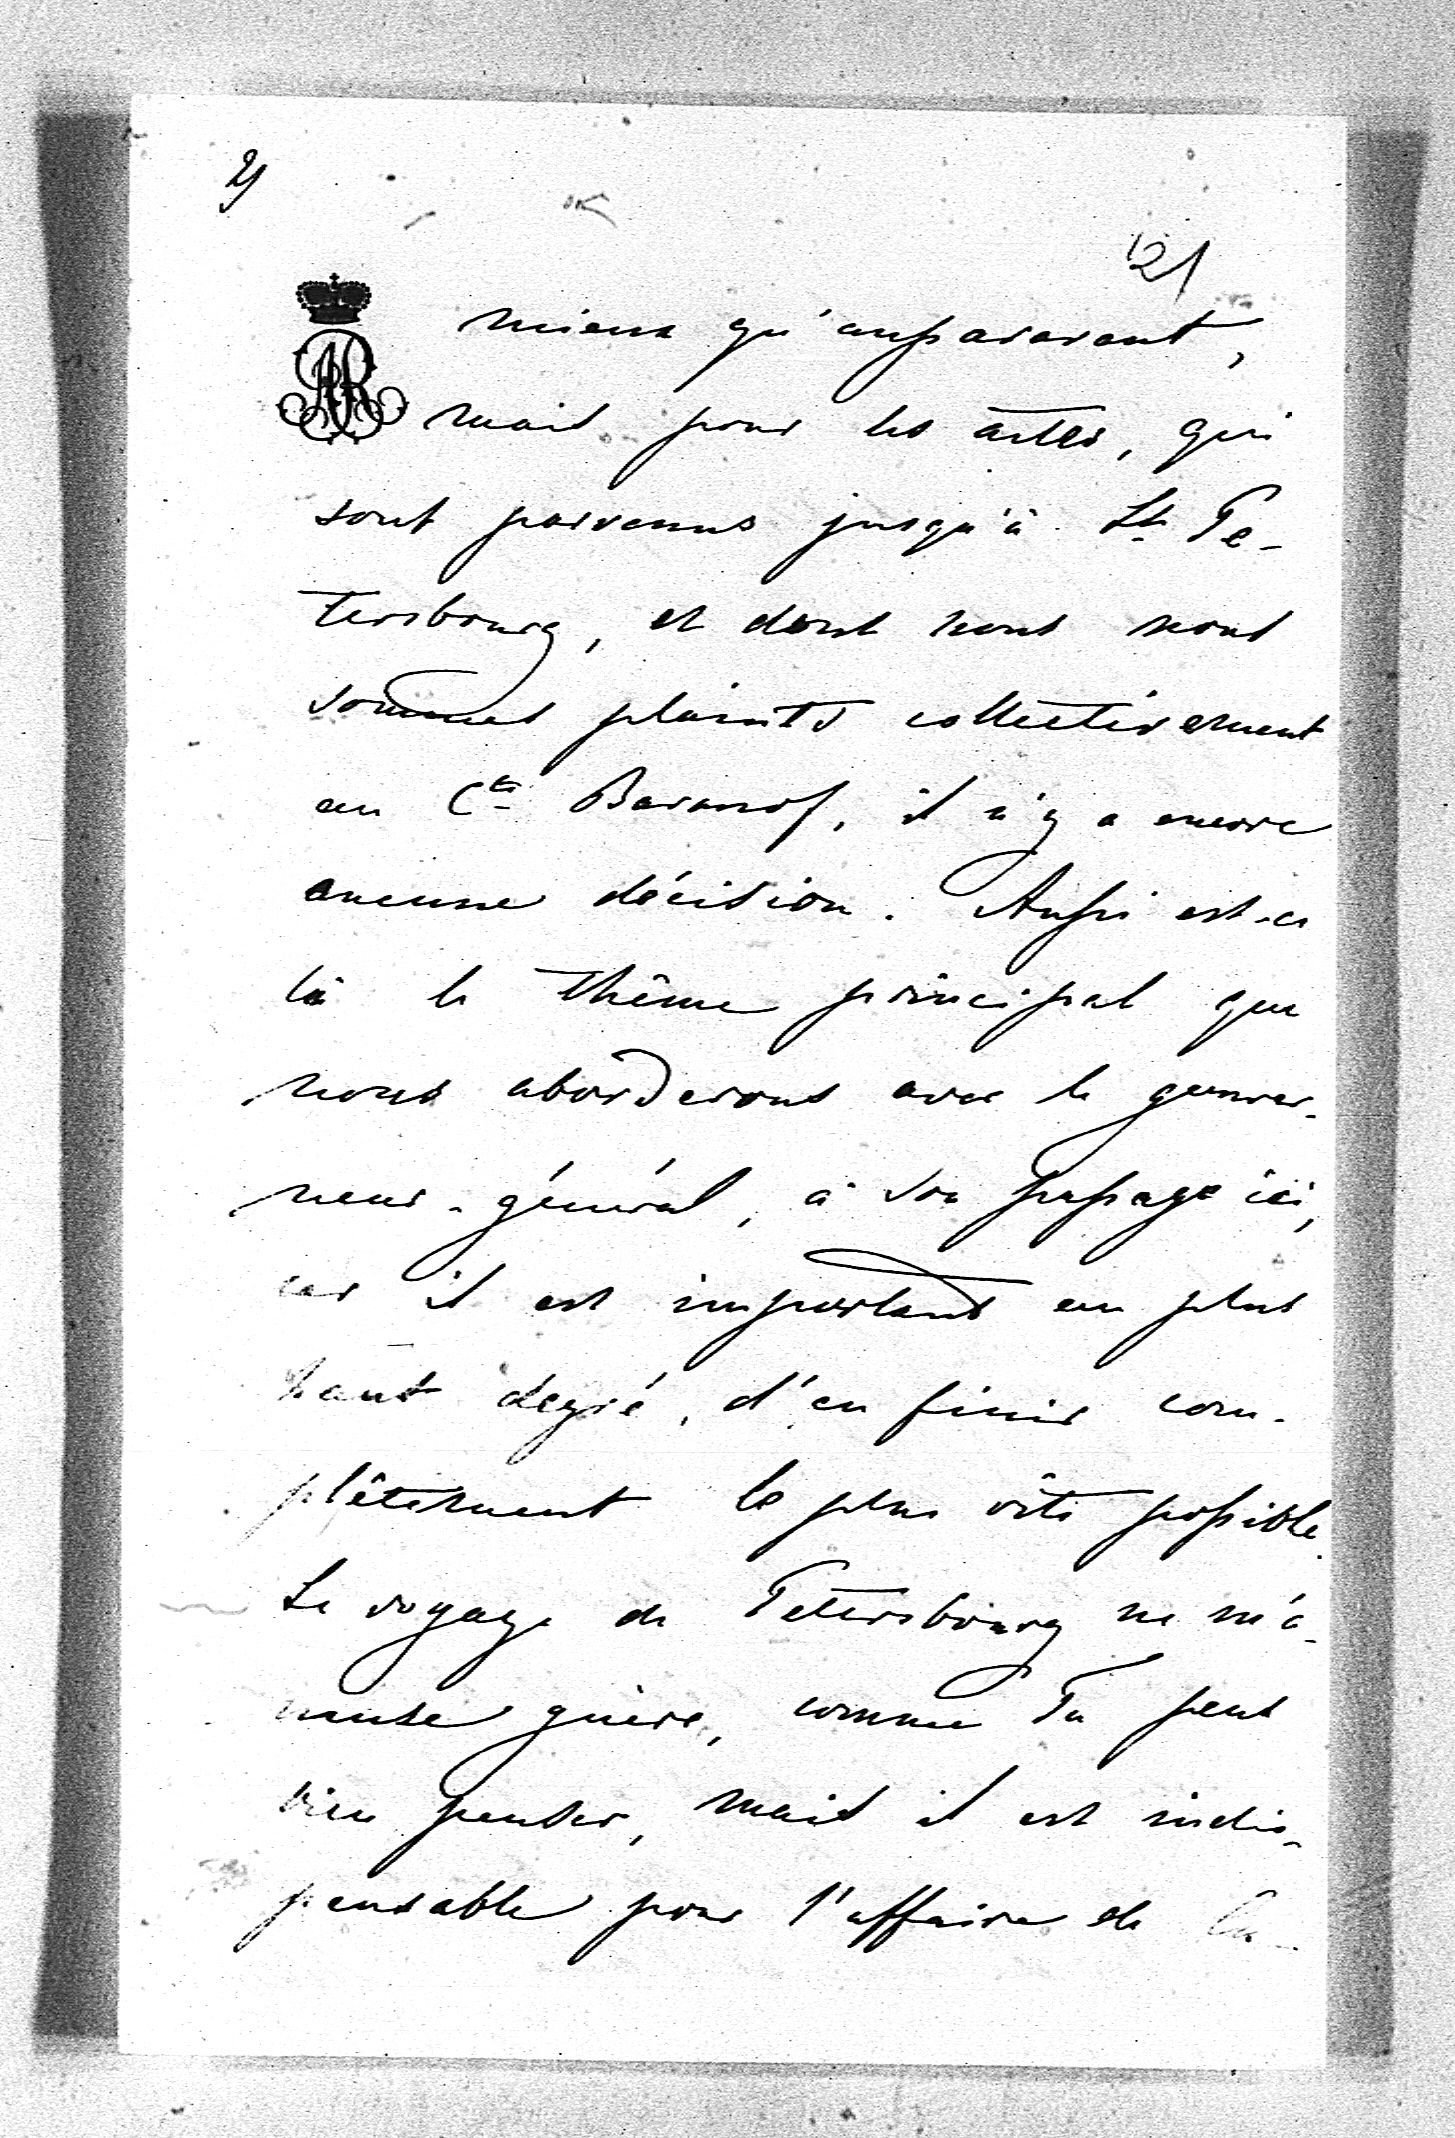 2)
21
mieux qu'auparavant,
mais pour les actes, qui
sont parvenus jusqu'à St Pe-
tersbourg, et dont nous nous
sommes plaints collectivement
au Cte Baranof, il n'y a encore
aucune décision. Aussi est-ce
là le thême principal que
nous aborderons avec le gouver-
neur-général, à son passage ici,
car il est important au plus
haut degré, d'en finir com-
plêtement le plus vite possible.
Le voyage de Petersbourg ne m'a-
muse guère, comme Tu peux
bien penser, mais il est indis-
pensable pour l'affaire de